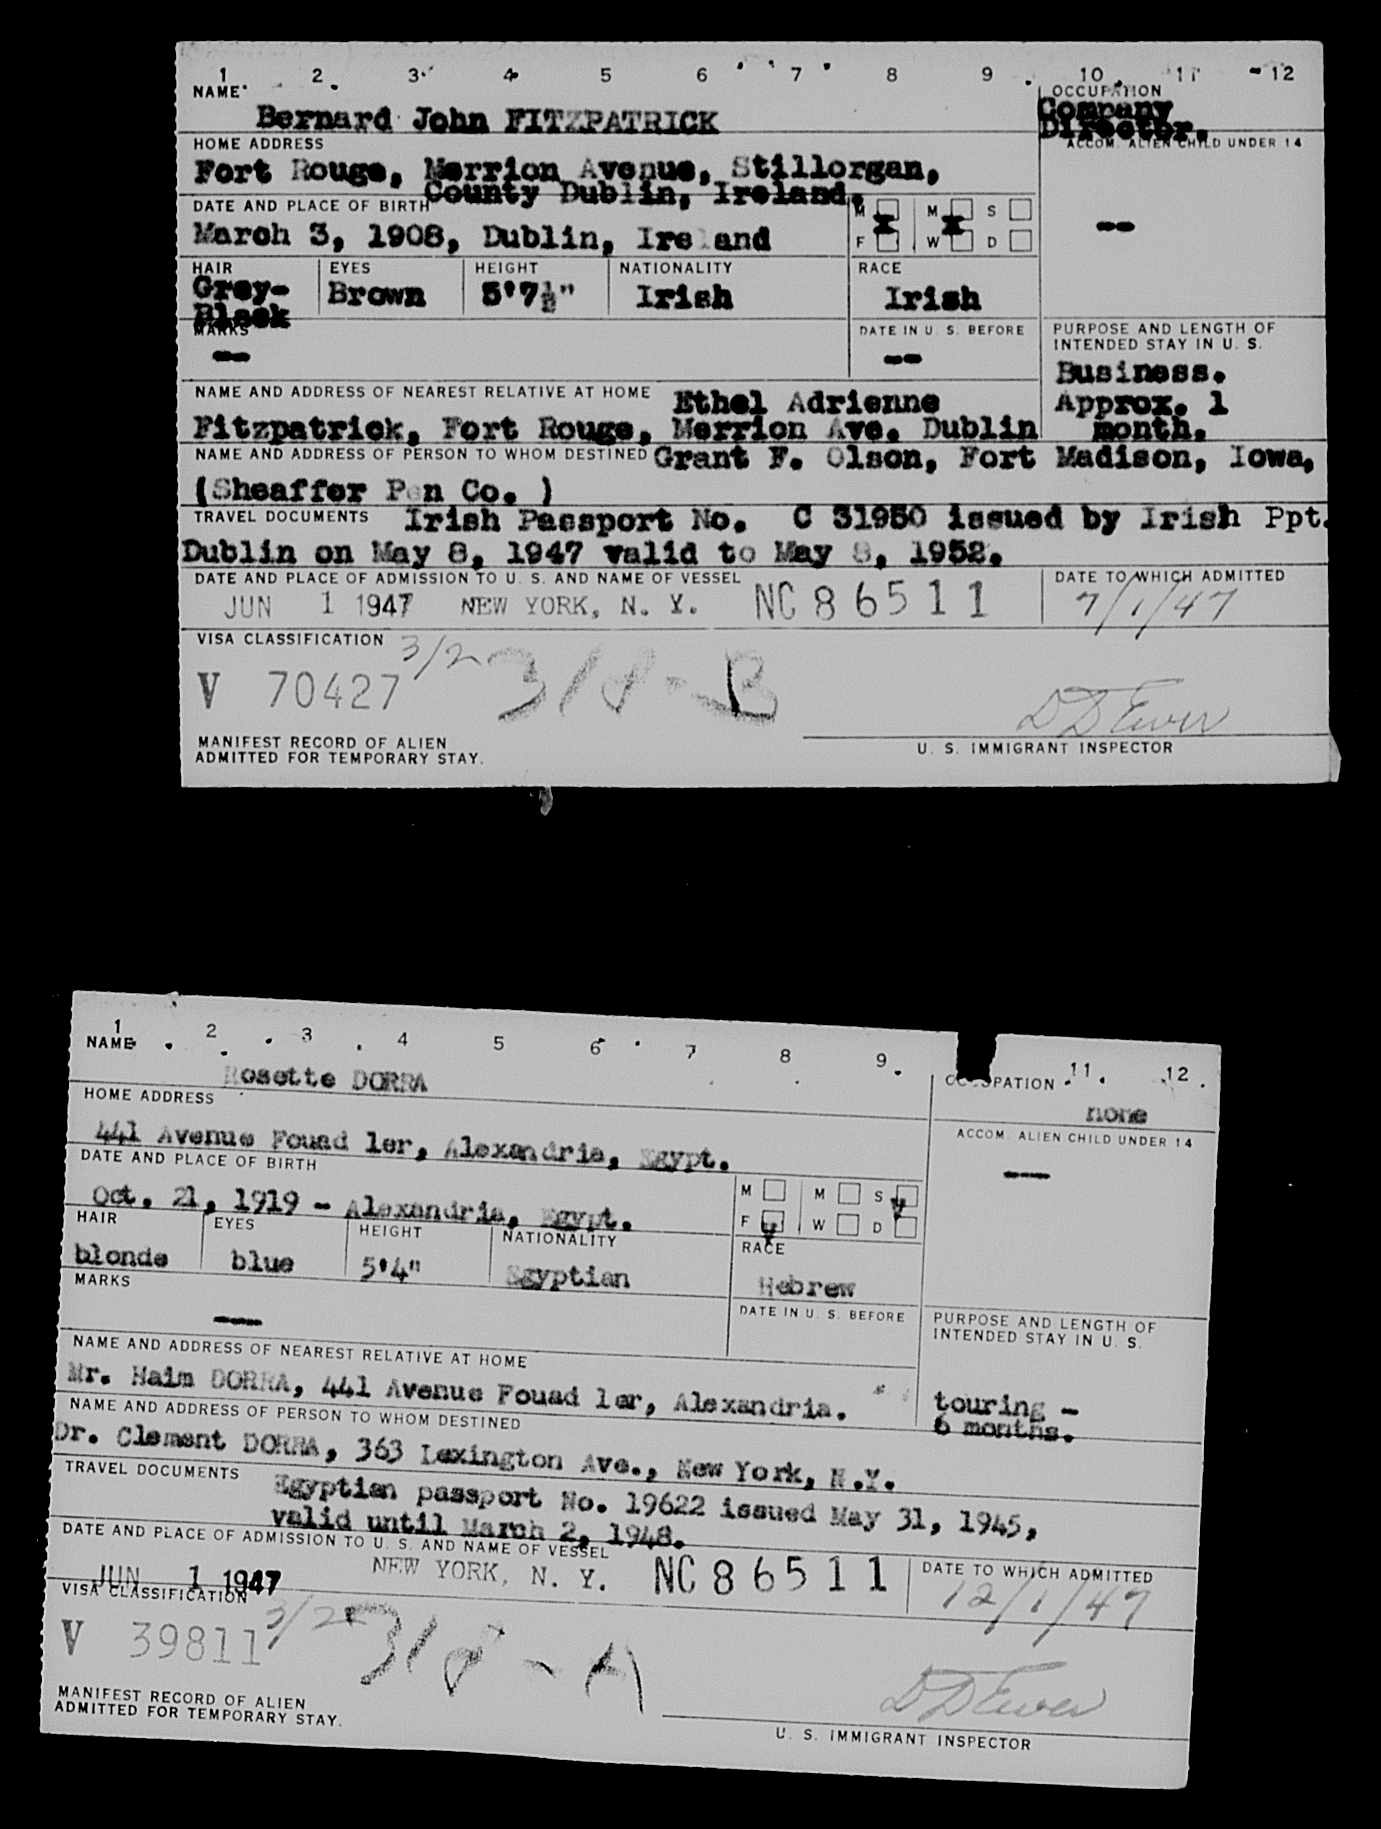 1 2 3 4 5 6 7 8 9 10 11 12
NAME
OCCUPATION
Bernard John FITZPATRICK
Company
Director.
HOME ADDRESS
ACCOM. ALIEN CHILD UNDER 14
Fort Rouge, Merrion Avenue, Stillorgan,
County Dublin, Ireland.
--
DATE AND PLACE OF BIRTH
M M S
March 3, 1908, Dublin, Ireland
F W D
X X
HAIR EYES HEIGHT NATIONALITY RACE
Grey-
Black
Brown 5'7½" Irish Irish
MARKS
DATE IN U. S. BEFORE
PURPOSE AND LENGTH OF
INTENDED STAY IN U. S.
-- --
Business.
Approx. 1
month.
NAME AND ADDRESS OF NEAREST RELATIVE AT HOME Ethel Adrienne
Fitzpatrick, Fort Rouge, Merrion Ave. Dublin
NAME AND ADDRESS OF PERSON TO WHOM DESTINED Grant F. Olson, Fort Madison, Iowa,
(Sheaffer Pen Co. )
TRAVEL DOCUMENTS Irish Passport No. C 31950 issued by Irish Ppt.
Dublin on May 8, 1947 valid to May 8, 1952.
DATE AND PLACE OF ADMISSION TO U. S. AND NAME OF VESSEL
DATE TO WHICH ADMITTED
JUN 1 1947 NEW YORK, N. Y. NC 86511
7/1/47
VISA CLASSIFICATION
3/2
V 70427
318-B
DD Ewer
MANIFEST RECORD OF ALIEN
ADMITTED FOR TEMPORARY STAY.
U. S. IMMIGRANT INSPECTOR
1 2 3 4 5 6 7 8 9 11 12
NAME
PATION
Rosette DORRA
none
HOME ADDRESS
ACCOM. ALIEN CHILD UNDER 14
441 Avenue Fouad 1er, Alexandria, Egypt.
---
DATE AND PLACE OF BIRTH
M M S
Oct. 21, 1919 - Alexandria, Egypt.
F W D
HAIR EYES HEIGHT NATIONALITY RACE
blonde blue 5'4" Egyptian Hebrew
MARKS
DATE IN U. S. BEFORE
PURPOSE AND LENGTH OF
INTENDED STAY IN U. S.
---
NAME AND ADDRESS OF NEAREST RELATIVE AT HOME
Mr. Haim DORRA, 441 Avenue Fouad 1er, Alexandria.
touring -
6 months.
NAME AND ADDRESS OF PERSON TO WHOM DESTINED
Dr. Clement DORRA, 363 Lexington Ave., New York, N.Y.
TRAVEL DOCUMENTS
Egyptian passport No. 19622 issued May 31, 1945,
valid until March 2, 1948.
DATE AND PLACE OF ADMISSION TO U. S. AND NAME OF VESSEL
DATE TO WHICH ADMITTED
JUN 1 1947 NEW YORK, N. Y. NC 86511
12/1/47
VISA CLASSIFICATION
3/2
V 39811
318-A
DD Ewer
MANIFEST RECORD OF ALIEN
ADMITTED FOR TEMPORARY STAY.
U. S. IMMIGRANT INSPECTOR